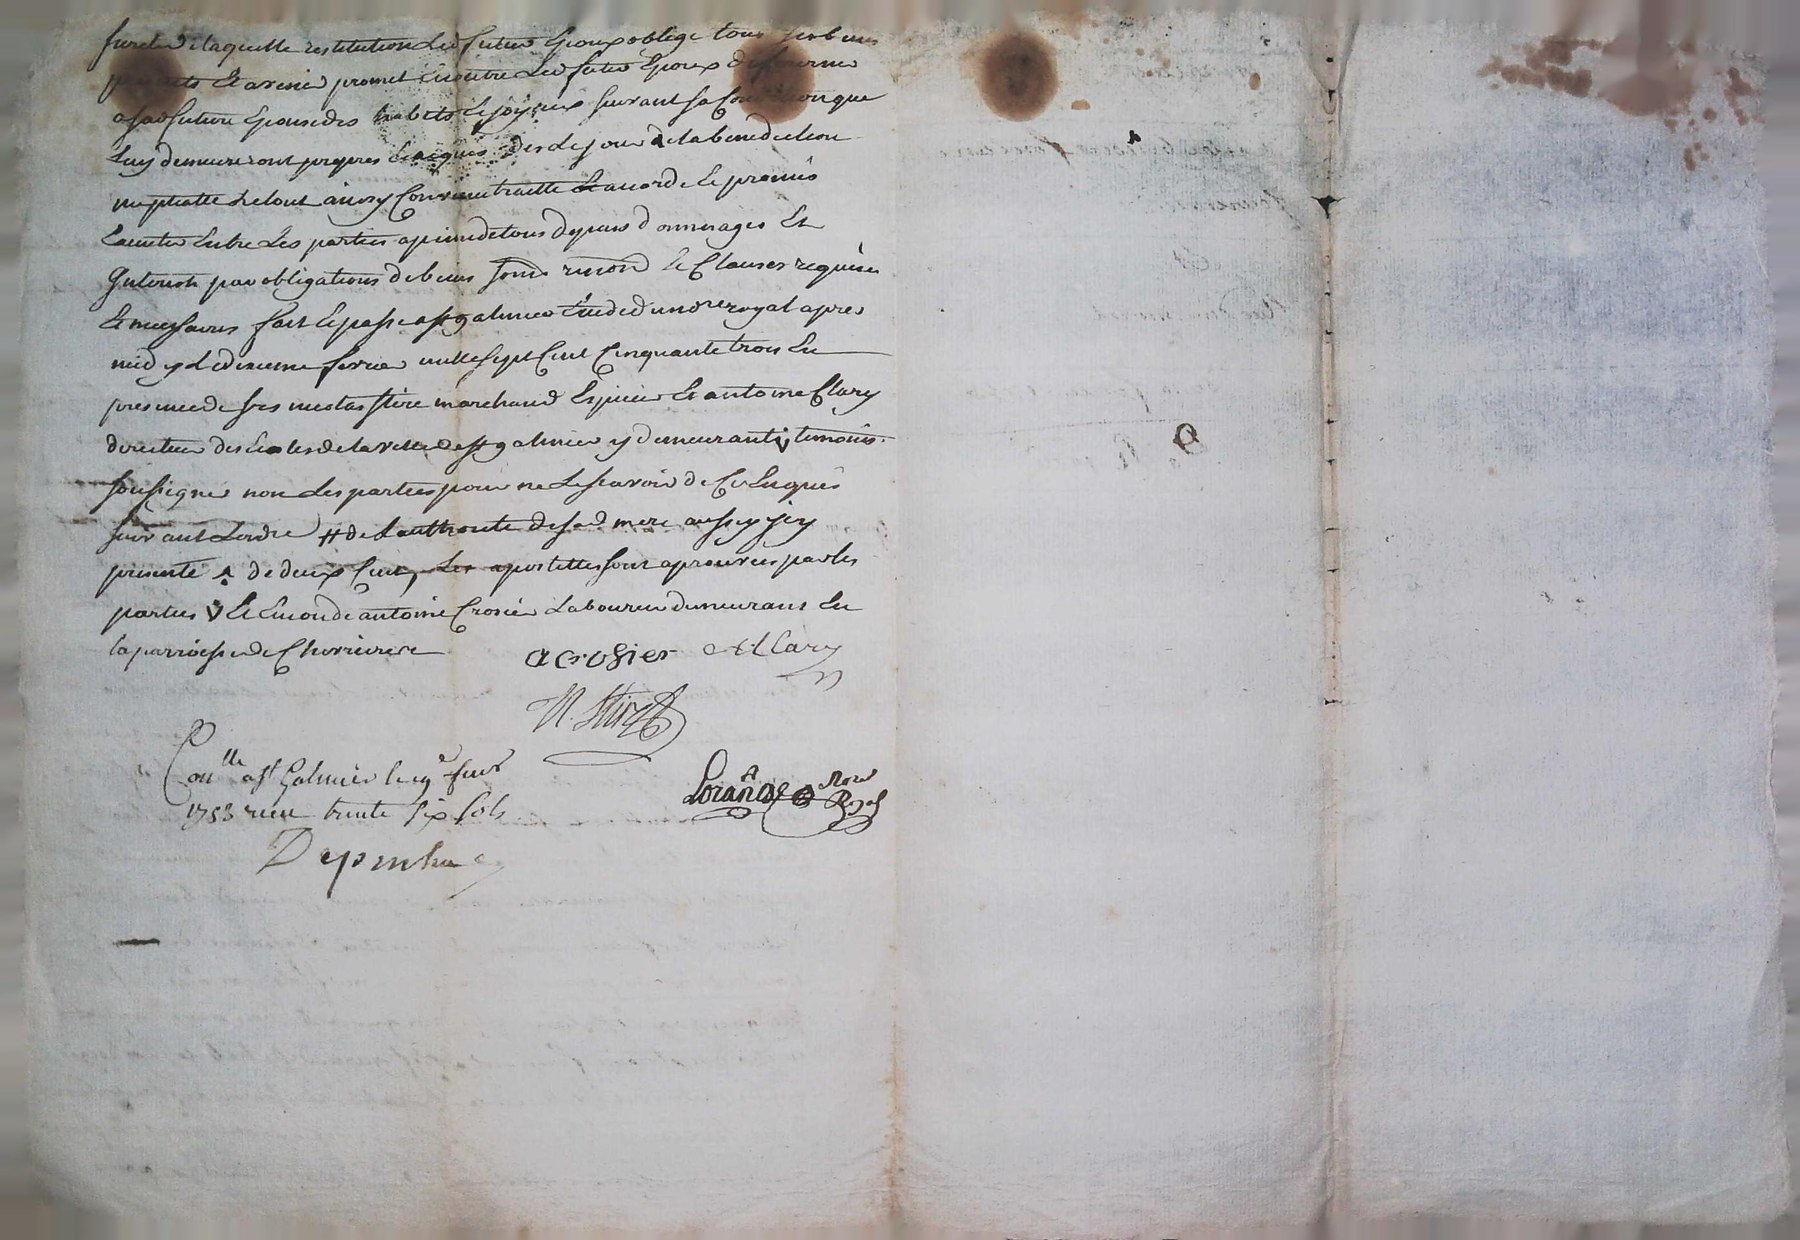 sureté de laquelle restitution led futur Epoux oblige tous ses biens
presents Et avenir promet en outre led futur Epoux de fournir
a sad future Epouse des habits Et joyaux suivant sa Condition que
luy demeureront propres Et acquis des le jour de la benediction
nuptialle Le tout ainsy Convenu traitté Et accordé Et promis
Entre Les parties a peine de tous depans dommages Et
Interets par obligations de biens Et Clauses requises
Et necessaires fait Et passé a st galmier Etude dud nore royal apres
midy Le fevrier mille sept Cent Cinquante trois En
presence de srs nicolas stire marchand Epicier Et antoine Clary
directeur des Ecoles de la ville de st galmier y demeurant V temoins
soussignés non Les parties pour ne Le scavoir de Ce Enquis
suivant Lordre # de Lauthorité de sad mere aussy jcy
presente de deux Cent, Les apostilles sont aprouvées par les
parties V Et Encor de antoine Crosier Laboureur demeurant En
la parroisse de Chevrieres
acrosier A Clary
N. Stire
Conlle a st Galmier le 19e fevr
1753 receu trente six sols
Lorañde Nore Royal